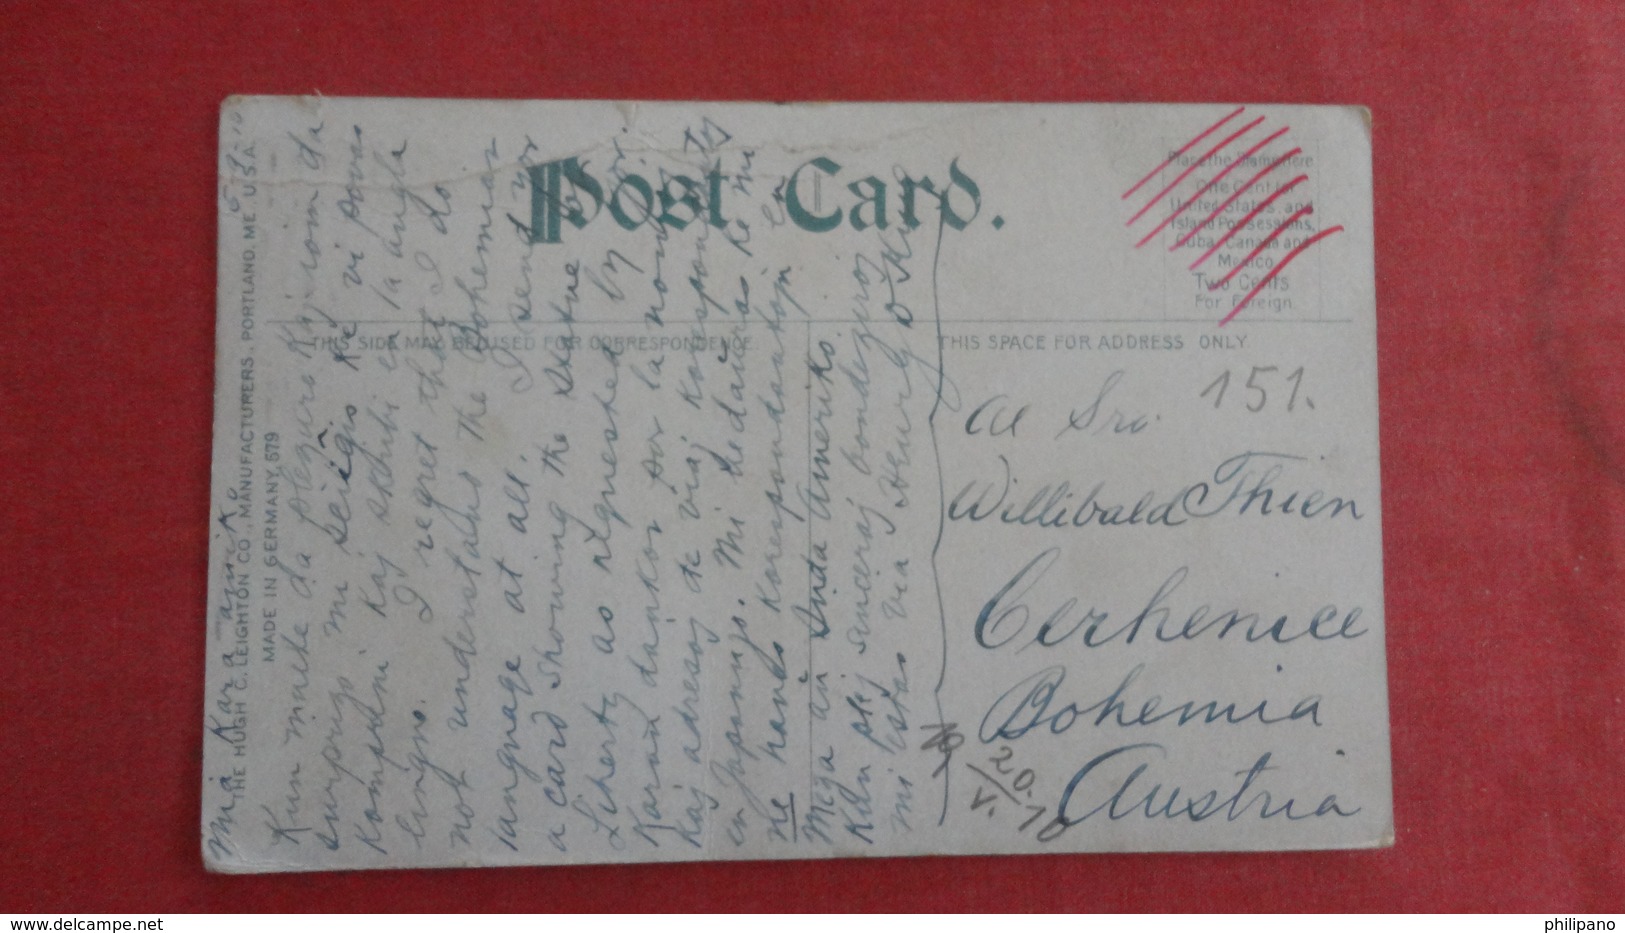 Post Card.
Place the Stamp here
One Cent for
United States, and
Island Possessions,
Cuba, Canada and
Mexico
Two Cents
For Foreign.
THIS SIDE MAY BE USED FOR CORRESPONDENCE.
THIS SPACE FOR ADDRESS ONLY.
THE HUGH C. LEIGHTON CO., MANUFACTURERS, PORTLAND, ME. U.S.A.
MADE IN GERMANY. 579
Mia Kara amiko
Kun multe da plezuro Kaj iom da
surprizo mi sciiĝis Ke vi povas
Kompreni Kaj skribi en la angla
lingvo. I regret that I do
not understand the Bohemian
language at all. I send you
a card showing the Statue of
Liberty as requested by you.
Koran dankon por la nomoj
Kaj adresoj de viaj Korespondantoj
en Japanujo. Mi bedaŭras ke mi
ne havas Korespondantojn en
aŭ Inda Ameriko.
Kun plej sinceraj bondeziroj
mi estas via Henry
151.
Al Sro.
Willibald Thien
Cerhenice
Bohemia
Austria
20.
V. 10
philipano